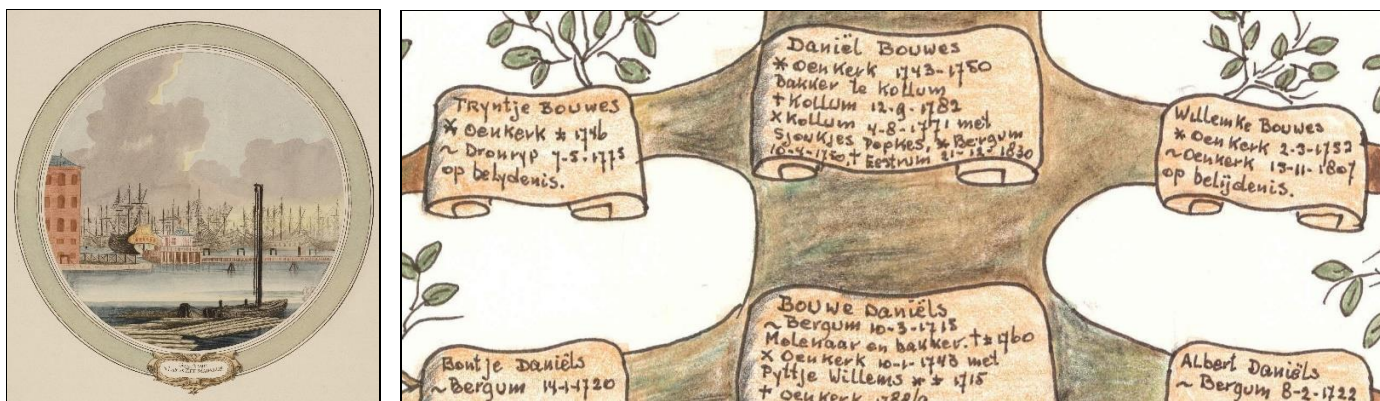 Tryntje Bouwes
* Oenkerk ± 1746
~ Dronryp 7-5-1775
op belydenis.
Daniël Bouwes
* Oenkerk 1743-1750
Bakker te Kollum
† Kollum 12-9-1782
x Kollum 4-8-1771 met
Sjoukjes Popkes, * Bergum
10-4-1750, † Eestrum 21-12-1830
Willemke Bouwes
* Oenkerk 2-3-1752
~ Oenkerk 15-11-1807
op belijdenis.
Bontje Daniëls
~ Bergum 14-1-1720
Bouwe Daniëls
~ Bergum 10-3-1715
Molenaar en bakker. † ± 1760
x Oenkerk 10-1-1743 met
Pyttje Willems * ± 1715
† Oenkerk
Albert Daniëls
~ Bergum 8-2-1722